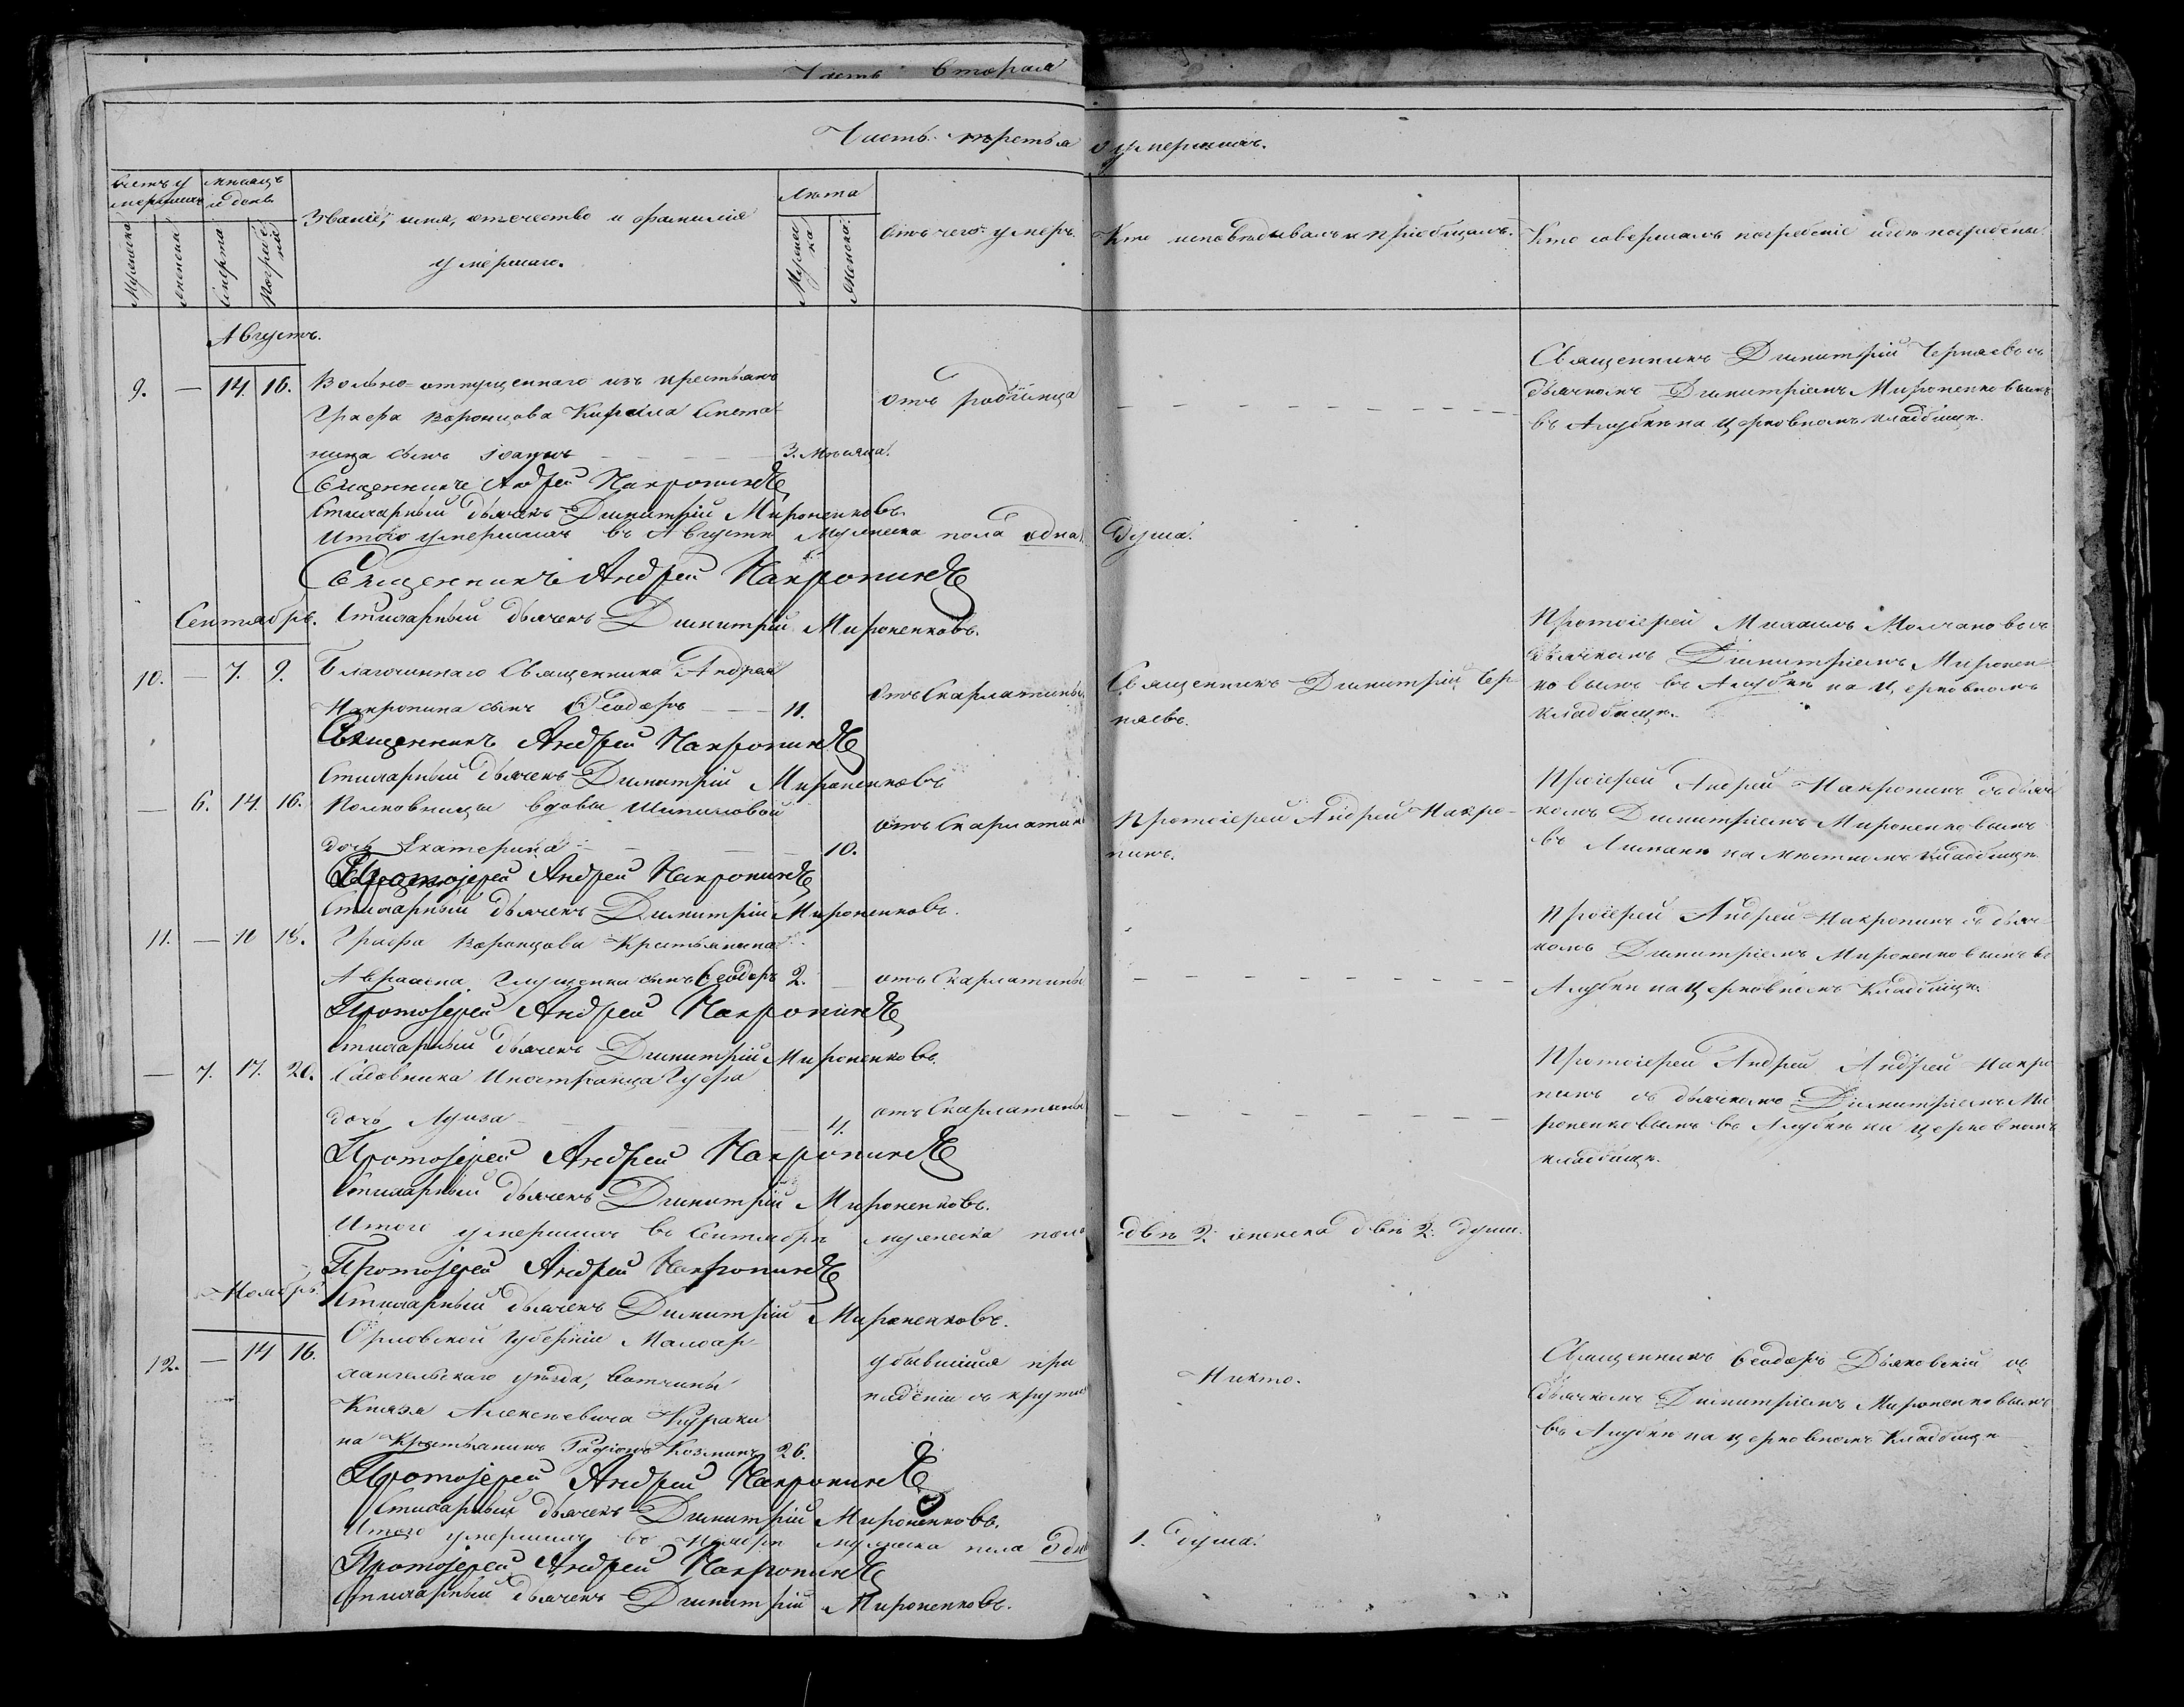 Часть Вторая
Часть третья о умершихъ.
Счетъ умершихъ
Мѣсяцъ и день
Званіе, имя, отчество и фамилія
умершаго.
Лѣта
Отъ чего умеръ.
Кто исповѣдывалъ и пріобщалъ.
Кто совершалъ погребеніе и гдѣ погребены.
Мужеска
Женска
Смерти
Погребенія
Мужеска
Женска
Августъ.
9. — 14. 16. Вольно-отпущеннаго изъ крестьянъ
Графа Воронцова Кирила
сынъ Іоаннъ — — — 3. Мѣсяца.
отъ родимца
— — — — — — — —
Священникъ Димитрій Черняевъ съ
дьячкомъ Димитріемъ Мироненковымъ
въ Алубкѣ на Церковномъ кладбищѣ.
Священникъ Андрей Накропинъ
Стихарный дьячекъ Димитрій Мироненковъ.
Итого умершихъ въ Августѣ мужеска пола одна душа.
Священникъ Андрей Накропинъ
Стихарный дьячекъ Димитрій Мироненковъ.
Сентябрь.
10. — 7. 9. Благочиннаго Священника Андрея
Накропина сынъ Ѳеодоръ — — 11.
отъ Скарлатины.
Священникъ Димитрій Чер-
няевъ.
Протоіерей Михаилъ Молчановъ съ
дьячкомъ Димитріемъ Миронен-
ковымъ въ Алубкѣ на Церковномъ
кладбищѣ.
Священникъ Андрей Накропинъ
Стихарный дьячекъ Димитрій Мироненковъ
— 6. 14. 16. Полковницы вдовы Шипиловой
дочь Екатерина — — — 10.
отъ Скарлатины
Протоіерей Андрей Накро-
пинъ.
Протоіерей Андрей Накропинъ съ дьяч-
комъ Димитріемъ Мироненковымъ
въ на мѣстномъ кладбищѣ.
Протоіерей Андрей Накропинъ
Стихарный дьячекъ Димитрій Мироненковъ.
11. — 16 18. Графа Воронцова Крестьянина
Авраама Глущенка сынъ Ѳеодоръ 2. —
отъ Скарлатины
— — — — — — — —
Протоіерей Андрей Накропинъ съ дьяч-
комъ Димитріемъ Мироненковымъ въ
Алубкѣ на Церковномъ Кладбищѣ.
Протоіерей Андрей Накропинъ
Стихарный дьячекъ Димитрій Мироненковъ.
— 7. 17. 20. Садовника Иностранца
дочь Луиза — — — 4.
отъ Скарлатины
— — — — — — — —
Протоіерей Андрей Андрей Накро-
пинъ съ дьячкомъ Димитріемъ Ми-
роненковымъ въ Алубкѣ на церковномъ
кладбищѣ.
Протоіерей Андрей Накропинъ
Стихарный дьячекъ Димитрій Мироненковъ.
Итого умершихъ въ Сентябрѣ мужеска пола двѣ 2. женска двѣ 2. души.
Протоіерей Андрей Накропинъ
Стихарный дьячекъ Димитрій Мироненковъ.
Ноябрь.
12. — 14 16. Орловской губерніи Малоар-
хангельскаго уѣзда, вотчины
Князя Алексѣевича Кураки-
на Крестьянинъ Козминъ 26.
убившійся при
паденіи съ крутизны
Никто.
Священникъ Ѳеодоръ Дьяковскій съ
дьячкомъ Димитріемъ Мироненковымъ
въ Алубкѣ на церковномъ Кладбищѣ
Протоіерей Андрей Накропинъ
Стихарный дьячекъ Димитрій Мироненковъ.
Итого умершихъ въ Ноябрѣ мужеска пола одна 1. душа.
Протоіерей Андрей Накропинъ
Стихарный дьячекъ Димитрій Мироненковъ.